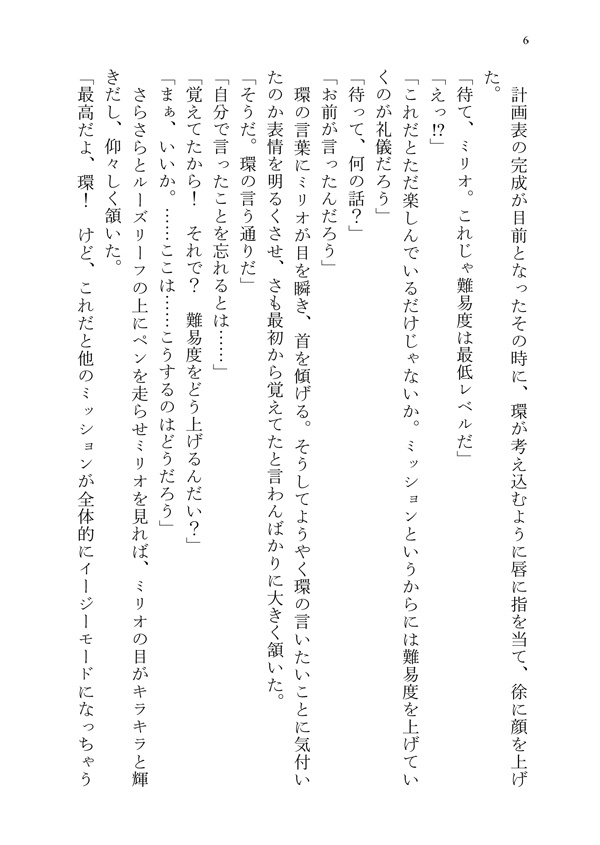 6
計画表の完成が目前となったその時に、環が考え込むように唇に指を当て、徐に顔を上げ
た。
「待て、ミリオ。これじゃ難易度は最低レベルだ」
「えっ!?」
「これだとただ楽しんでいるだけじゃないか。ミッションというからには難易度を上げてい
くのが礼儀だろう」
「待って、何の話？」
「お前が言ったんだろう」
環の言葉にミリオが目を瞬き、首を傾げる。そうしてようやく環の言いたいことに気付い
たのか表情を明るくさせ、さも最初から覚えてたと言わんばかりに大きく頷いた。
「そうだ。環の言う通りだ」
「自分で言ったことを忘れるとは……」
「覚えてたから！　それで？　難易度をどう上げるんだい？」
「まぁ、いいか。……ここは……こうするのはどうだろう」
さらさらとルーズリーフの上にペンを走らせミリオを見れば、ミリオの目がキラキラと輝
きだし、仰々しく頷いた。
「最高だよ、環！　けど、これだと他のミッションが全体的にイージーモードになっちゃう